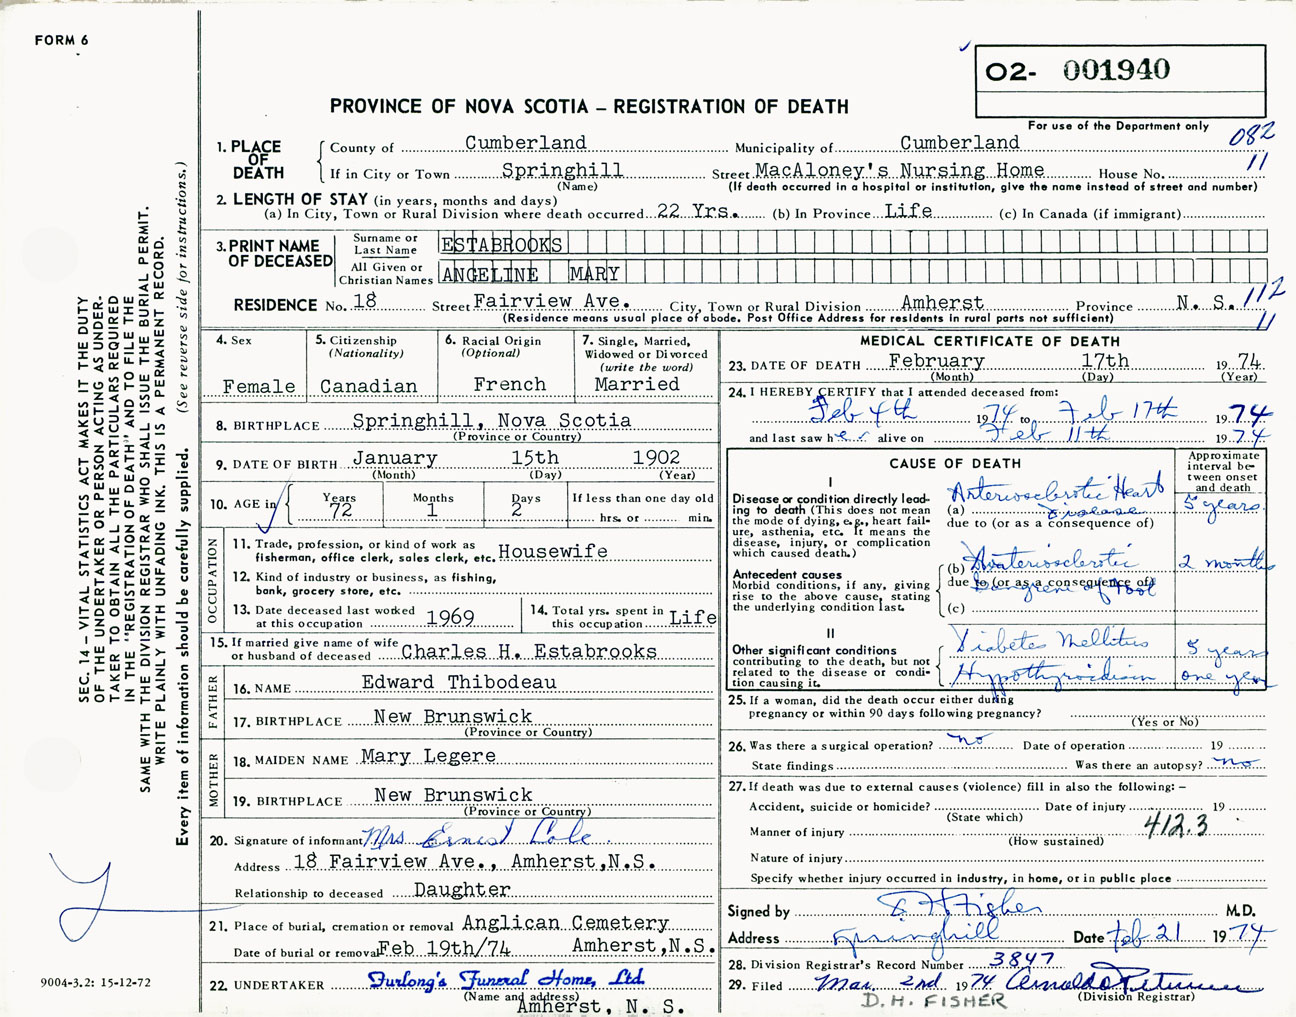 FORM 6
O2- 001940
PROVINCE OF NOVA SCOTIA – REGISTRATION OF DEATH
For use of the Department only
082
11
1. PLACE OF DEATH
County of Cumberland Municipality of Cumberland
If in City or Town Springhill Street MacAloney's Nursing Home House No.
(Name) (If death occurred in a hospital or institution, give the name instead of street and number)
2. LENGTH OF STAY (in years, months and days)
(a) In City, Town or Rural Division where death occurred 22 Yrs. (b) In Province Life (c) In Canada (if immigrant)
3. PRINT NAME OF DECEASED
Surname or Last Name ESTABROOKS
All Given or Christian Names ANGELINE MARY
RESIDENCE No. 18 Street Fairview Ave. City, Town or Rural Division Amherst Province N. S. 112
(Residence means usual place of abode. Post Office Address for residents in rural parts not sufficient) 11
4. Sex
Female
5. Citizenship
(Nationality)
Canadian
6. Racial Origin
(Optional)
French
7. Single, Married,
Widowed or Divorced
(write the word)
Married
8. BIRTHPLACE Springhill, Nova Scotia
(Province or Country)
9. DATE OF BIRTH January 15th 1902
(Month) (Day) (Year)
10. AGE in
Years Months Days If less than one day old
72 1 2 hrs. or min.
OCCUPATION
11. Trade, profession, or kind of work as
fisherman, office clerk, sales clerk, etc. Housewife
12. Kind of industry or business, as fishing,
bank, grocery store, etc.
13. Date deceased last worked
at this occupation 1969
14. Total yrs. spent in
this occupation Life
15. If married give name of wife
or husband of deceased Charles H. Estabrooks
FATHER
16. NAME Edward Thibodeau
17. BIRTHPLACE New Brunswick
(Province or Country)
MOTHER
18. MAIDEN NAME Mary Legere
19. BIRTHPLACE New Brunswick
(Province or Country)
20. Signature of informant Mrs Ernest Cole.
Address 18 Fairview Ave., Amherst,N.S.
Relationship to deceased Daughter
21. Place of burial, cremation or removal Anglican Cemetery
Date of burial or removal Feb 19th/74 Amherst,N.S.
22. UNDERTAKER Furlong's Funeral Home, Ltd.
(Name and address)
Amherst, N. S.
MEDICAL CERTIFICATE OF DEATH
23. DATE OF DEATH February 17th 19 74
(Month) (Day) (Year)
24. I HEREBY CERTIFY that I attended deceased from:
Feb 4th 1974 to Feb 17th 1974
and last saw her alive on Feb 11th 1974
CAUSE OF DEATH
Approximate
interval be-
tween onset
and death
I
Disease or condition directly lead-
ing to death (This does not mean
the mode of dying, e.g., heart fail-
ure, asthenia, etc. It means the
disease, injury, or complication
which caused death.)
Arteriosclerotic Heart
(a) Disease 5 years
due to (or as a consequence of)
Antecedent causes
Morbid conditions, if any, giving
rise to the above cause, stating
the underlying condition last.
(b) Arteriosclerotic 2 months
due to (or as a consequence of)
Gangrene of Foot
(c)
II
Other significant conditions
contributing to the death, but not
related to the disease or condi-
tion causing it.
Diabetes Mellitus 5 years
Hypothyroidism one year
25. If a woman, did the death occur either during
pregnancy or within 90 days following pregnancy?
(Yes or No)
26. Was there a surgical operation? no Date of operation 19
State findings Was there an autopsy? no
27. If death was due to external causes (violence) fill in also the following: –
Accident, suicide or homicide? Date of injury 19
(State which)
412.3
Manner of injury
(How sustained)
Nature of injury
Specify whether injury occurred in industry, in home, or in public place
Signed by D H Fisher M.D.
Address Springhill Date Feb 21 1974
28. Division Registrar's Record Number 3847
29. Filed Mar. 2nd 1974
(Division Registrar)
D. H. FISHER
SEC. 14 – VITAL STATISTICS ACT MAKES IT THE DUTY
OF THE UNDERTAKER OR PERSON ACTING AS UNDER-
TAKER TO OBTAIN ALL THE PARTICULARS REQUIRED
IN THE "REGISTRATION OF DEATH" AND TO FILE THE
SAME WITH THE DIVISION REGISTRAR WHO SHALL ISSUE THE BURIAL PERMIT.
WRITE PLAINLY WITH UNFADING INK. THIS IS A PERMANENT RECORD.
Every item of information should be carefully supplied. (See reverse side for instructions.)
9004-3.2: 15-12-72